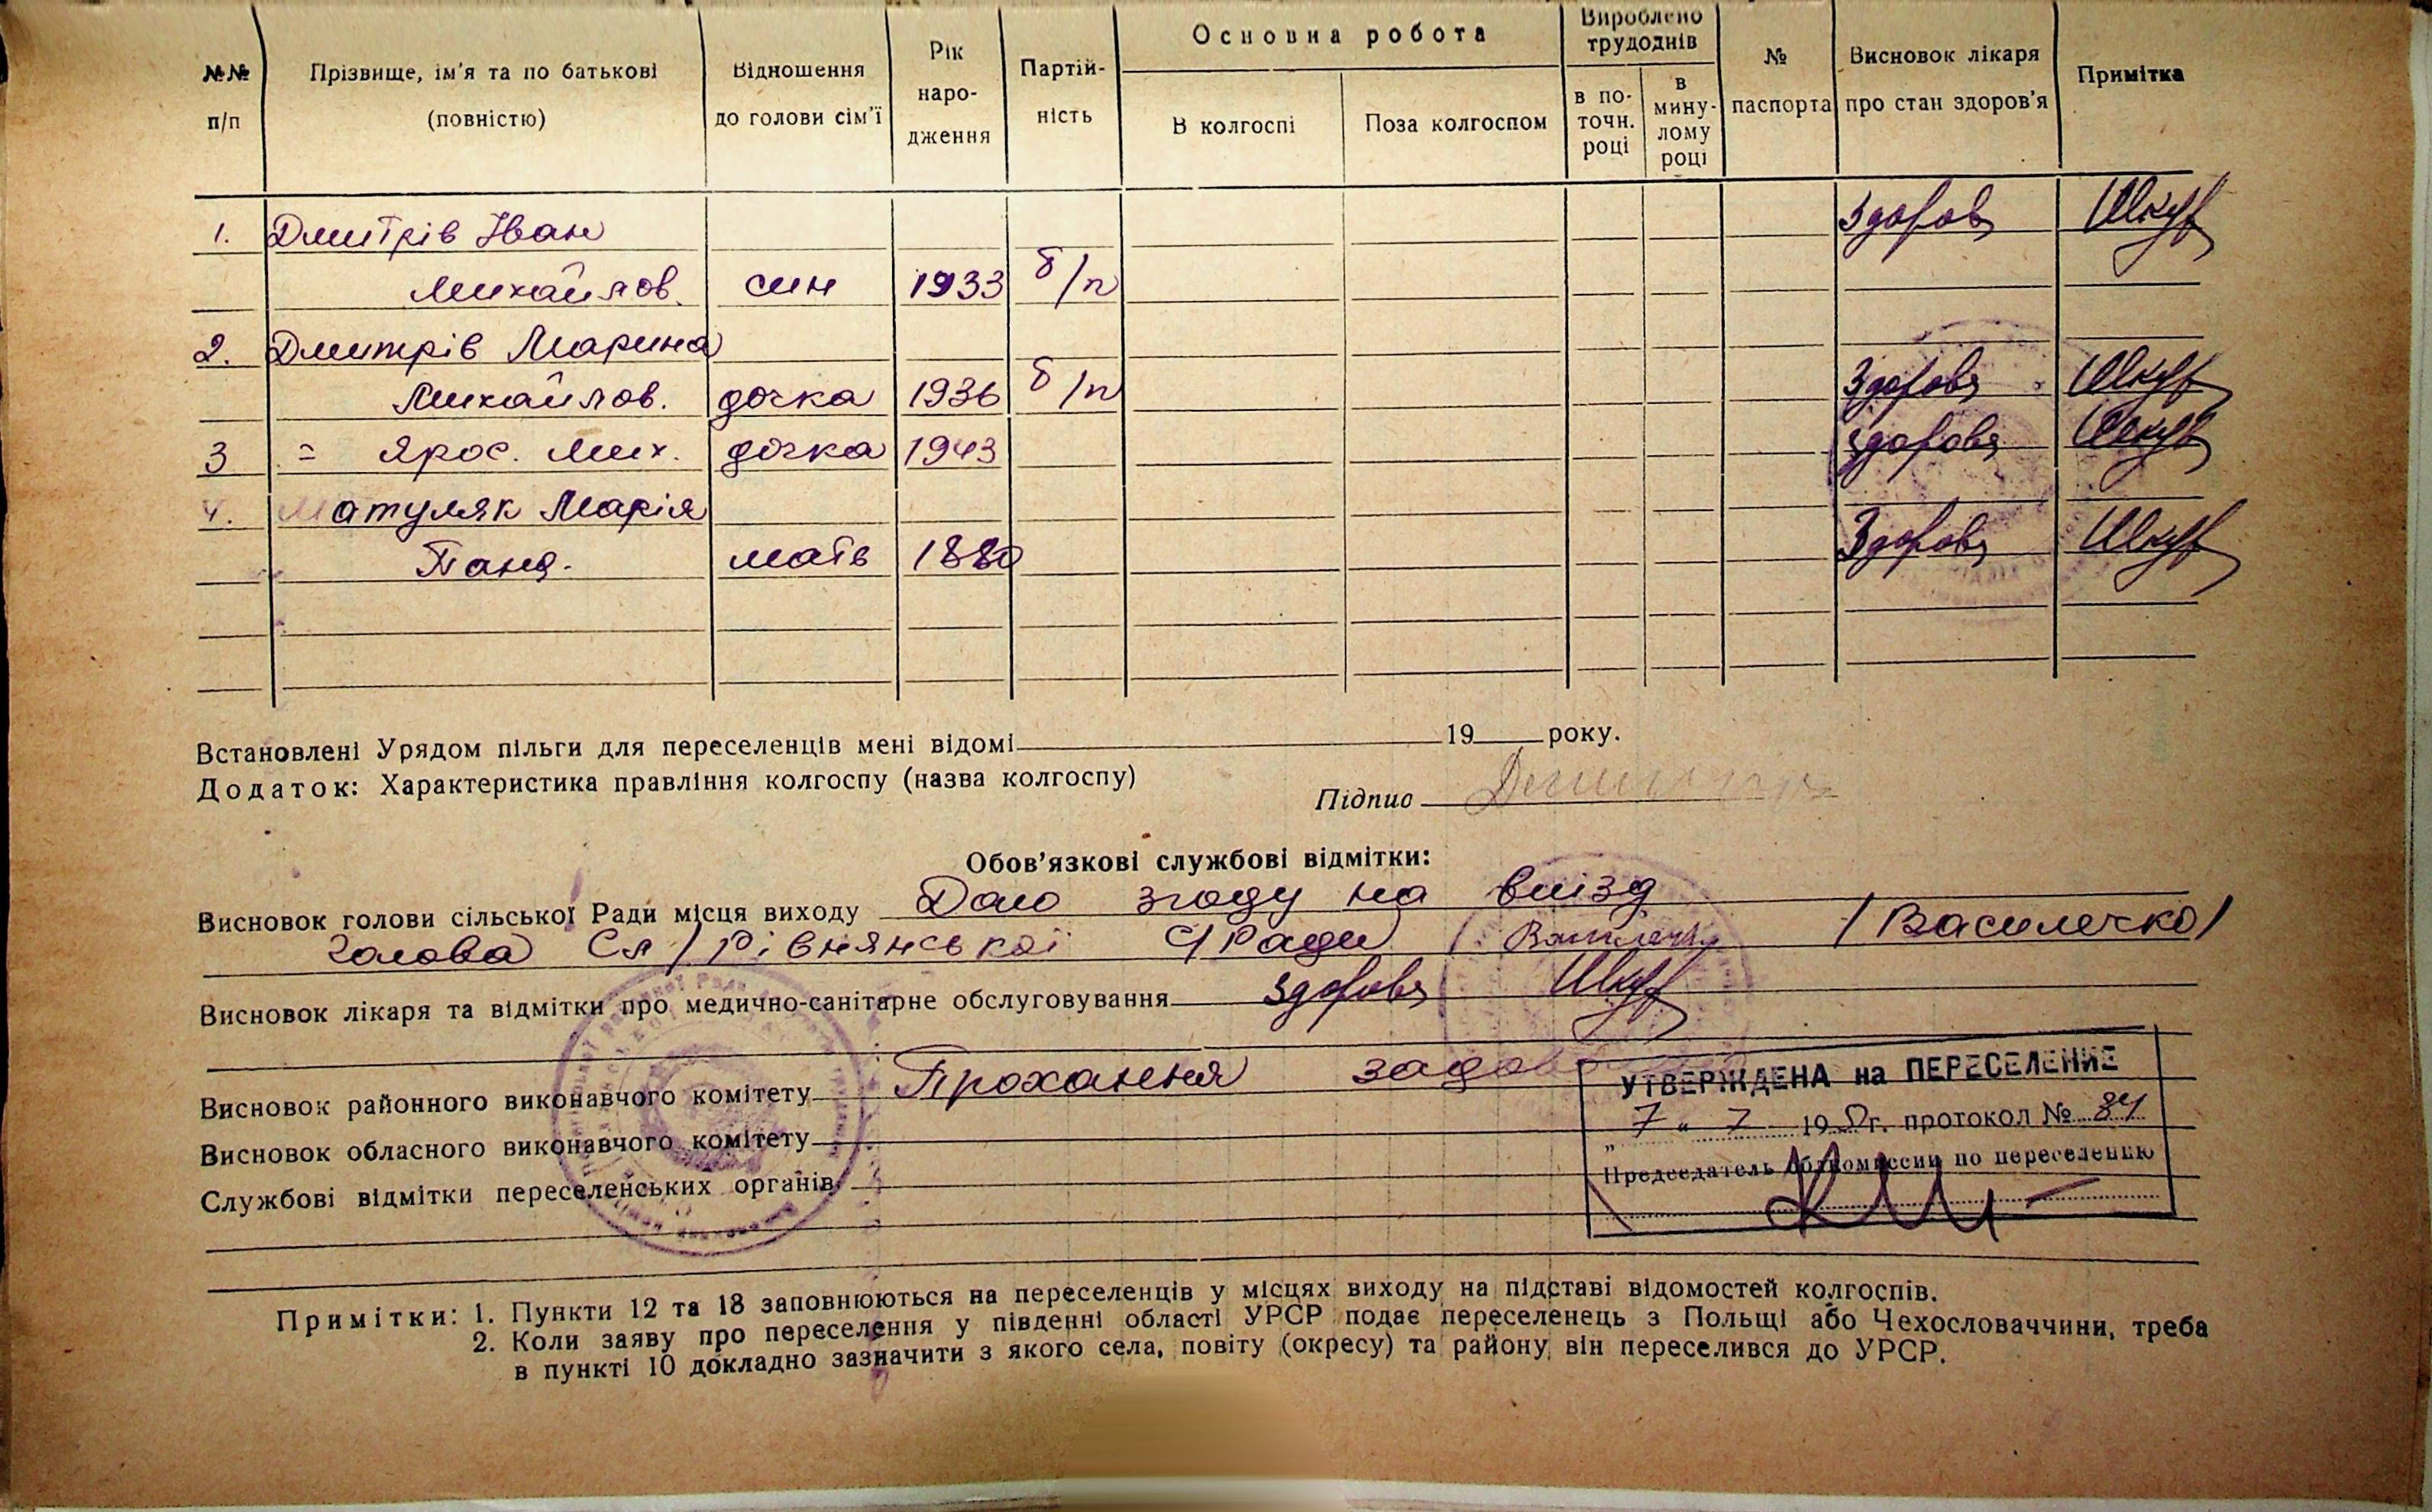 №№ п/п Прізвище, ім'я та по батькові (повністю) Відношення до голови сім'ї Рік народження Партійність Основна робота В колгоспі Поза колгоспом Вироблено трудоднів в поточн. році в минулому році № паспорта Висновок лікаря про стан здоров'я Примітка
1. Дмитрів Іван Здоров
Михайлов. син 1933 б/п
2. Дмитрів Марина
Михайлов. дочка 1936 б/п Здорова
3 = Ярос. Мих. дочка 1943 Здорова
4. Матуляк Марія
Панд. мать 1880 Здорова
Встановлені Урядом пільги для переселенців мені відомі 19 року.
Додаток: Характеристика правління колгоспу (назва колгоспу)
Підпис
Обов'язкові службові відмітки:
Висновок голови сільської Ради місця виходу Даю згоду на виїзд
Голова Сл/Рівнянської С/Ради /Василечко/
Висновок лікаря та відмітки про медично-санітарне обслуговування Здорова
Висновок районного виконавчого комітету Прохання
Висновок обласного виконавчого комітету
Службові відмітки переселенських органів
УТВЕРЖДЕНА на ПЕРЕСЕЛЕНИЕ
„ 7 " 7 195 г. протокол № 84
Председатель облкомиссии по переселению
Примітки: 1. Пункти 12 та 18 заповнюються на переселенців у місцях виходу на підставі відомостей колгоспів.
2. Коли заяву про переселення у південні області УРСР подає переселенець з Польщі або Чехословаччини, треба
в пункті 10 докладно зазначити з якого села, повіту (окресу) та району, він переселився до УРСР.